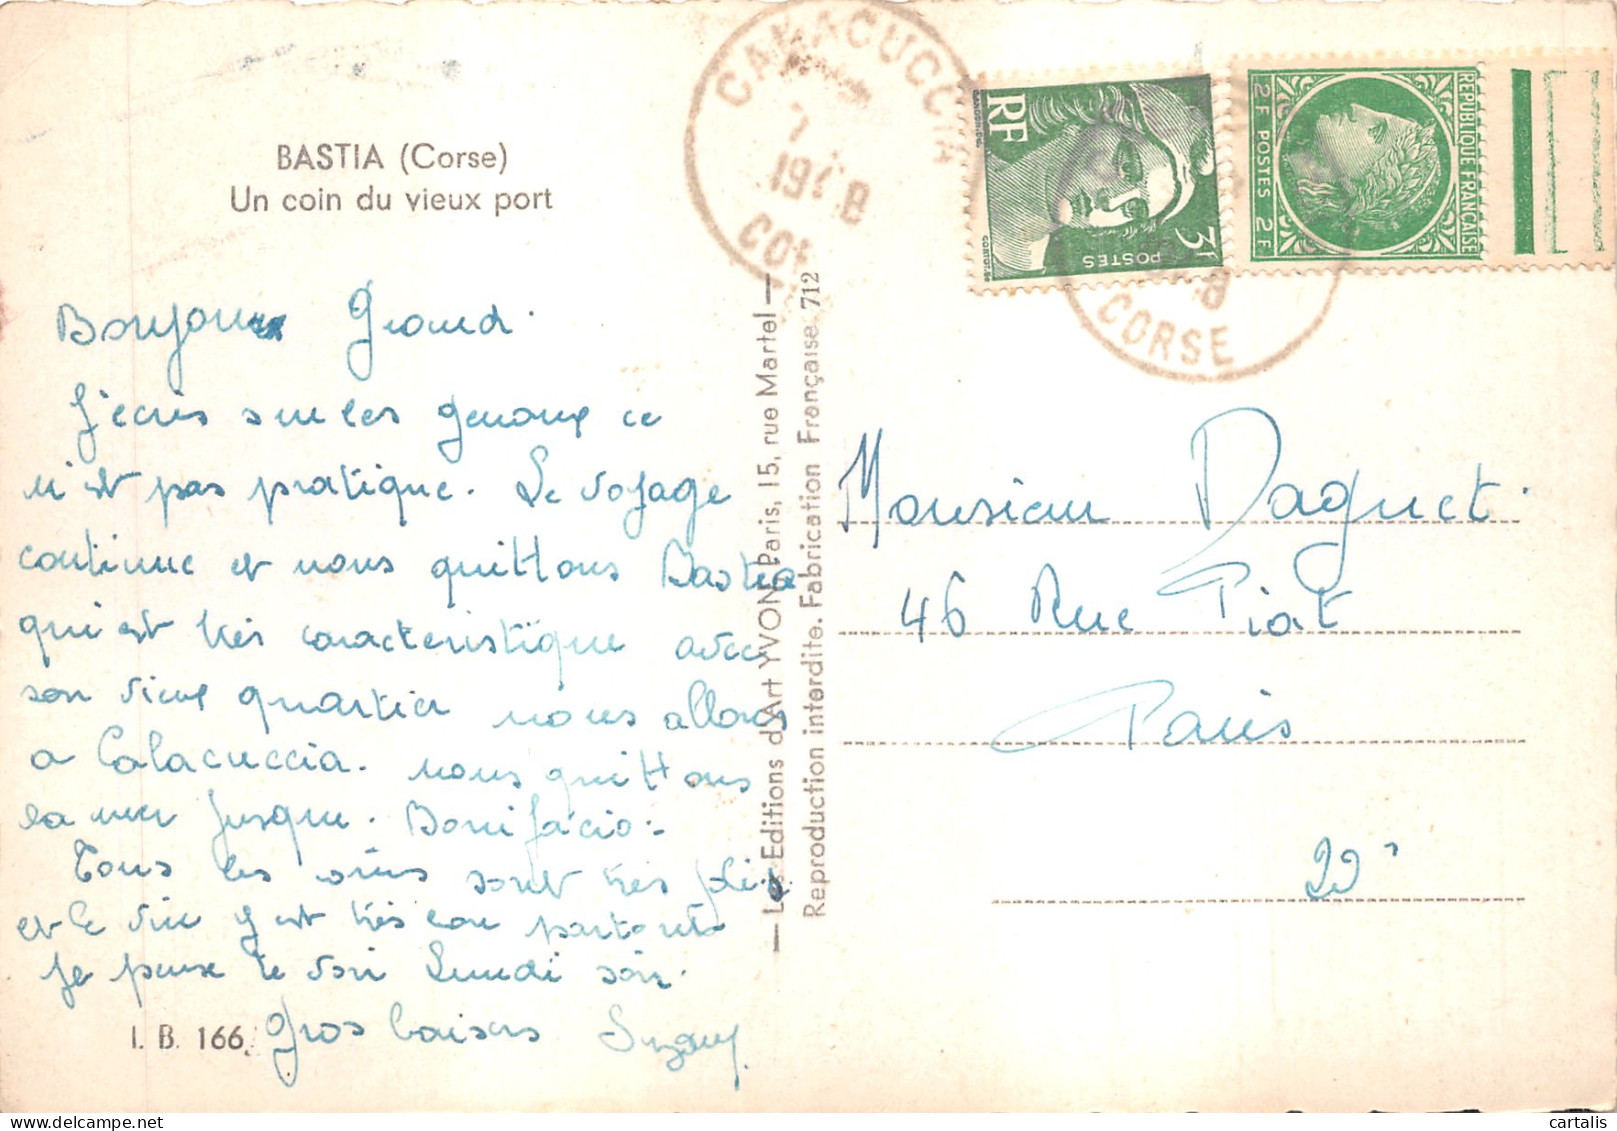 BASTIA (Corse)
Un coin du vieux port
Bonjour Grand.
J'écris sur les genoux ce
n'est pas pratique. Le voyage
continue et nous quittons Bastia
qui est très caractéristique avec
son vieux quartier nous allons
a Calacuccia. nous quittons
la mer jusque. Bonifacio.
Tous les sont très
et le vin y est très partout
Je pense te voir Lundi soir.
Gros baisers Suzany
I. B. 166
— Les Editions d'Art YVON, Paris, 15, rue Martel —
Reproduction interdite. Fabrication Française 712
CALACUCCIA
7
1948
CORSE
RF
POSTES
3F
REPUBLIQUE FRANCAISE
2F POSTES 2F
CORSE
Monsieur Daguet.
46 Rue Piat
Paris
20e
cartalis